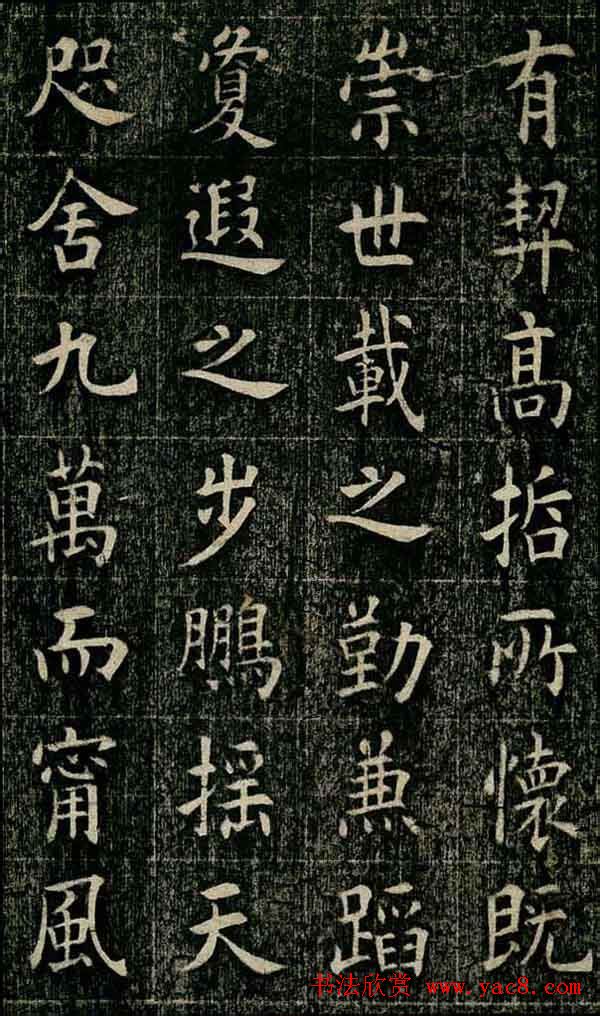 有契髙哲所懷既
崇世載之勤兼蹈
夐遐之步鵬搖天
咫舍九萬而甯風
书法欣赏 www.yac8.com